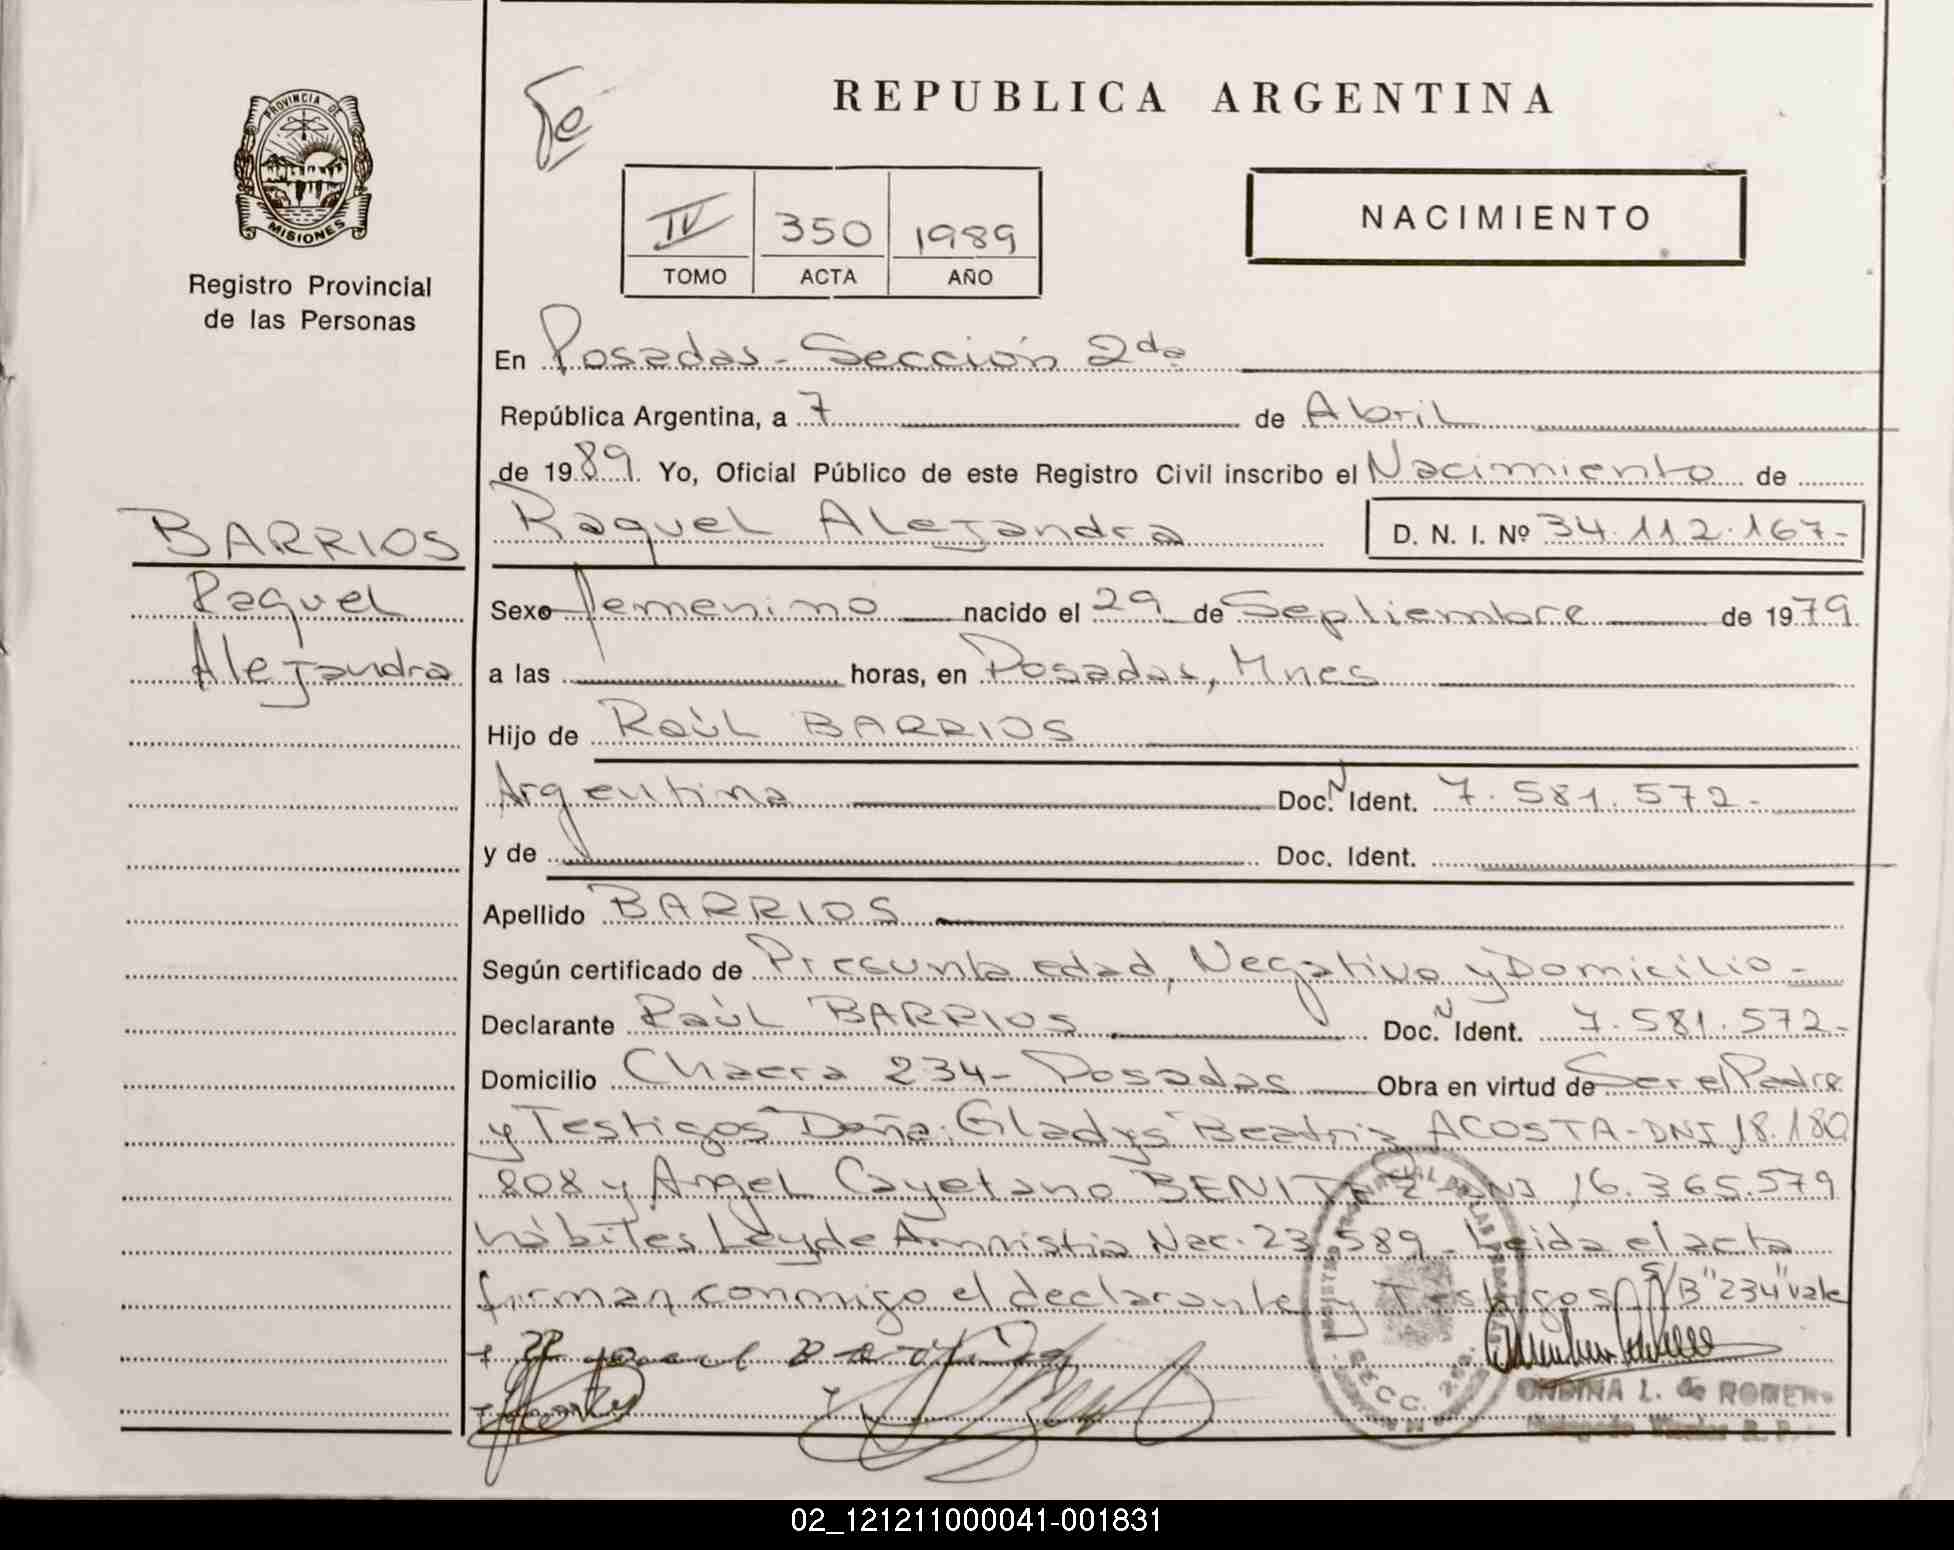 PROVINCIA DE
MISIONES
Registro Provincial
de las Personas
BARRIOS
Raquel
Alejandra
Fe
REPUBLICA ARGENTINA
IV 350 1989
TOMO ACTA AÑO
NACIMIENTO
En Posadas - Sección 2da
República Argentina, a 7 de Abril
de 1989. Yo, Oficial Público de este Registro Civil inscribo el Nacimiento de
Raquel Alejandra D. N. I. Nº 34.112.167-
Sexo femenino nacido el 29 de Septiembre de 1979
a las horas, en Posadas, Mnes
Hijo de Raúl BARRIOS
Argentina Doc. N Ident. 7.581.572-
y de Doc. Ident.
Apellido BARRIOS
Según certificado de Presunta edad, Negativo y Domicilio -
Declarante Raúl BARRIOS Doc. N Ident. 7.581.572-
Domicilio Chacra 234- Posadas Obra en virtud de Ser el Padre
y Testigos Doña: Gladys Beatriz ACOSTA - DNI 18.180
808 y Angel Cayetano BENITEZ - DNI 16.365.579
hábiles Ley de Amnistia Nac. 23.589 - Leida el acta
firman conmigo el declarante y Testigos S/B "234" vale
SECC. 2da.
ONDINA L. de ROMERO